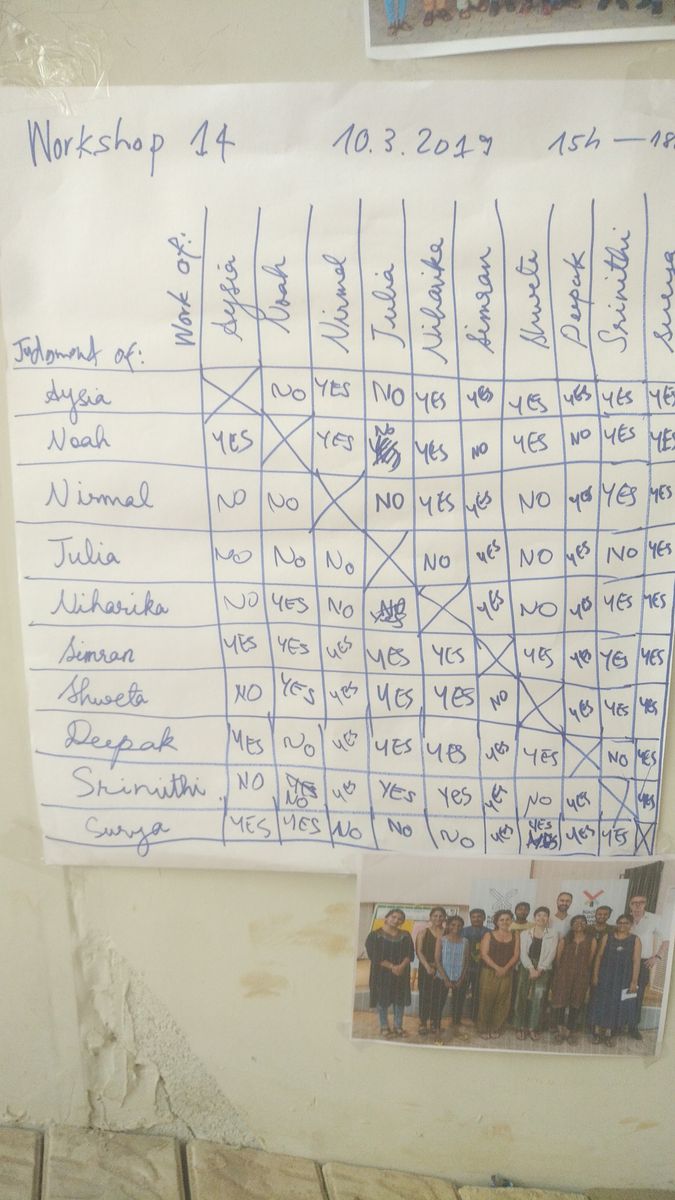 Workshop 14 10.3.2019 15h — 18
Work of: Aysia Noah Nirmal Julia Niharika Simran Shweta Deepak Srinithi Surya
Judgment of:
Aysia NO YES NO YES YES YES YES YES YES
Noah YES YES NO YES NO YES NO YES YES
Nirmal NO NO NO YES YES NO YES YES YES
Julia NO NO NO NO YES NO YES NO YES
Niharika NO YES NO YES NO YES YES YES
Simran YES YES YES YES YES YES YES YES YES
Shweta NO YES YES YES YES NO YES YES YES
Deepak YES NO YES YES YES YES YES NO YES
Srinithi NO NO YES YES YES YES NO YES YES
Surya YES YES NO NO NO YES YES YES YES